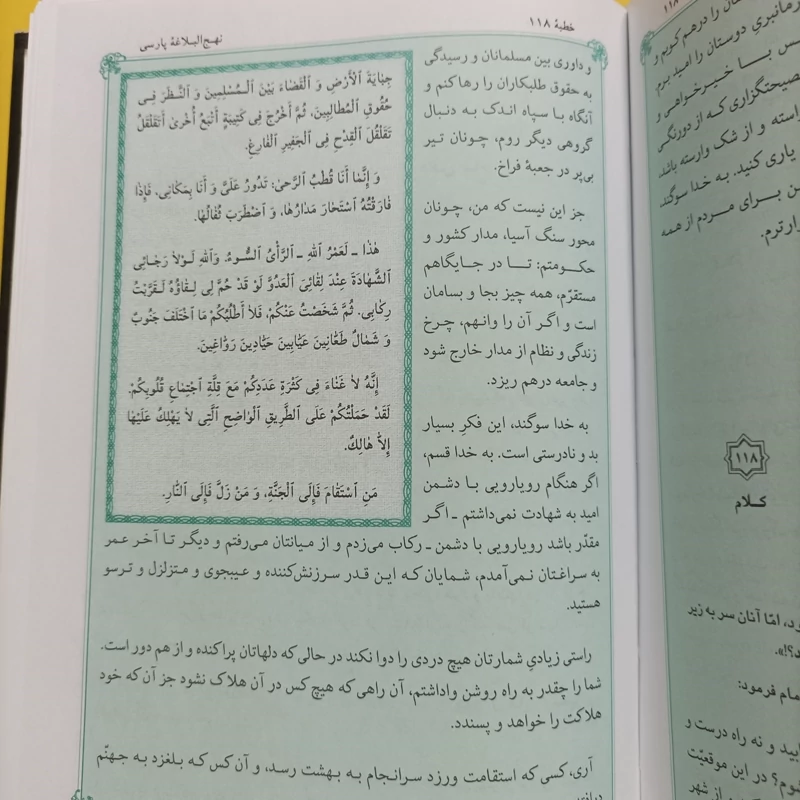 نهج‌البلاغهٔ پارسی
خطبهٔ ۱۱۸
جِبٰایَةَ ٱلْأَرْضِ وَ ٱلْقَضٰاءَ بَیْنَ ٱلْمُسْلِمِینَ وَ ٱلنَّظَرَ فِی
حُقُوقِ ٱلْمُطٰالِبِینَ، ثُمَّ أَخْرُجَ فِی کَتِیبَةٍ أَتْبَعُ أُخْریٰ أَتَقَلْقَلُ
تَقَلْقُلَ ٱلْقِدْحِ فِی ٱلْجَفِیرِ ٱلْفٰارِغِ.
وَ إِنَّمٰا أَنَا قُطْبُ ٱلرَّحیٰ، تَدُورُ عَلَیَّ وَ أَنَا بِمَکٰانِی، فَإِذٰا
فٰارَقْتُهُ ٱسْتَحٰارَ مَدٰارُهٰا، وَ ٱضْطَرَبَ ثُفٰالُهٰا.
هٰذٰا ـ لَعَمْرُ ٱللهِ ـ ٱلرَّأْیُ ٱلسُّوءُ. وَٱللهِ لَوْلاٰ رَجٰائِی
ٱلشَّهٰادَةَ عِنْدَ لِقٰائِیَ ٱلْعَدُوَّ لَوْ قَدْ حُمَّ لِی لِقٰاؤُهُ لَقَرَّبْتُ
رِکٰابِی. ثُمَّ شَخَصْتُ عَنْکُمْ، فَلاٰ أَطْلُبُکُمْ مَا ٱخْتَلَفَ جَنُوبٌ
وَ شَمٰالٌ طَعّٰانِینَ عَیّٰابِینَ حَیّٰادِینَ رَوّٰاغِینَ.
إِنَّهُ لاٰ غَنٰاءَ فِی کَثْرَةِ عَدَدِکُمْ مَعَ قِلَّةِ ٱجْتِمٰاعِ قُلُوبِکُمْ.
لَقَدْ حَمَلْتُکُمْ عَلَی ٱلطَّرِیقِ ٱلْوٰاضِحِ ٱلَّتِی لاٰ یَهْلِکُ عَلَیْهٰا
إِلاّٰ هٰالِکٌ.
مَنِ ٱسْتَقٰامَ فَإِلَی ٱلْجَنَّةِ، وَ مَنْ زَلَّ فَإِلَی ٱلنّٰارِ.
و داوری بین مسلمانان و رسیدگی
به حقوق طلبکاران را رها کنم و
آنگاه با سپاه اندک به دنبال
گروهی دیگر روم، چونان تیر
بی‌پر در جعبهٔ فراخ.
جز این نیست که من، چونان
محور سنگ آسیا، مدار کشور و
حکومتم: تا در جایگاهم
مستقرّم، همه چیز بجا و بسامان
است و اگر آن را وانهم، چرخ
زندگی و نظام از مدار خارج شود
و جامعه درهم ریزد.
به خدا سوگند، این فکرِ بسیار
بد و نادرستی است. به خدا قسم،
اگر هنگام رویارویی با دشمن
امید به شهادت نمی‌داشتم ـ اگر
مقدّر باشد رویارویی با دشمن ـ رکاب می‌زدم و از میانتان می‌رفتم و دیگر تا آخر عمر
به سراغتان نمی‌آمدم، شمایان که این قدر سرزنش‌کننده و عیبجوی و متزلزل و ترسو
هستید.
راستی زیادیِ شمارتان هیچ دردی را دوا نکند در حالی‌که دلهاتان پراکنده و از هم دور است.
شما را چقدر به راه روشن واداشتم، آن راهی که هیچ کس در آن هلاک نشود جز آن که خود
هلاکت را خواهد و پسندد.
آری، کسی که استقامت ورزد سرانجام به بهشت رسد، و آن کس که بلغزد به جهنّم
۱۱۸
رمانبریِ دوستان را امید برم.
خیرخواهی و
یاری کنید. به خدا سوگند،
برای مردم از همه
۱۱۸
کلام
امّا آنان سر به زیر
فرمود:
و نه راه درست و
در این موقعیّت
از شهر